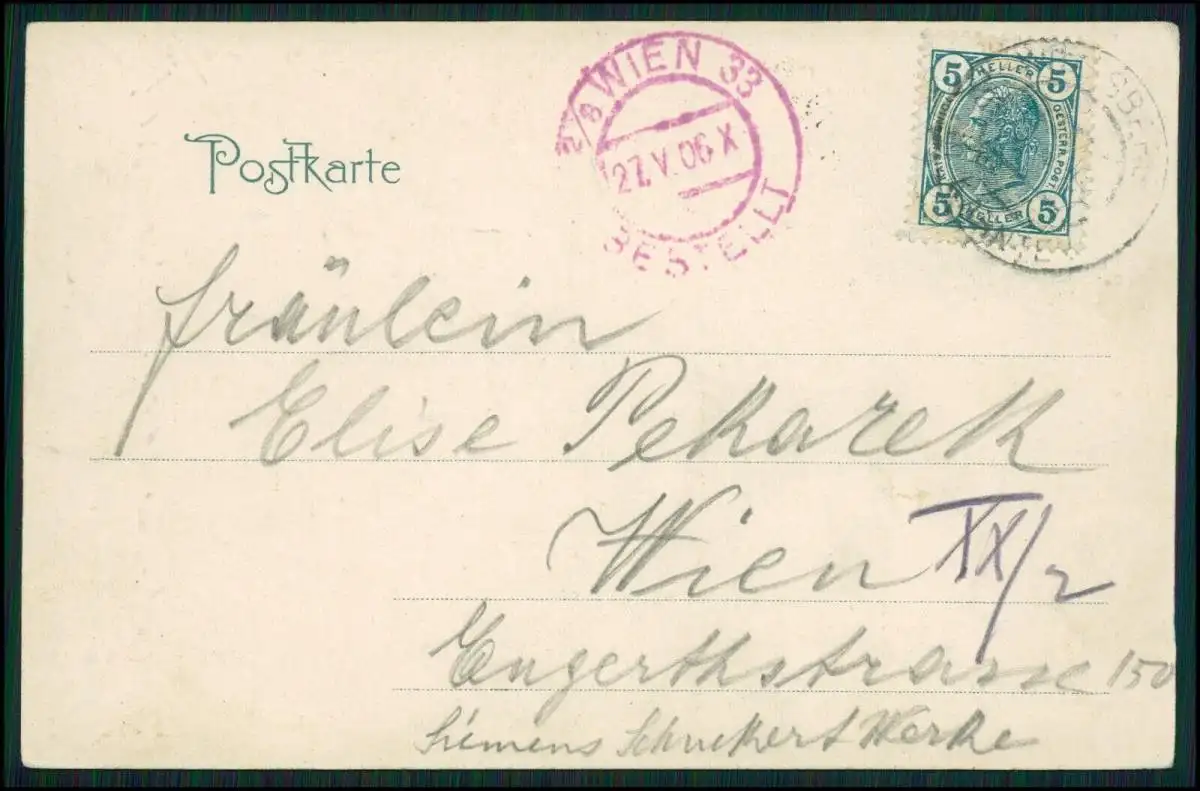 Postkarte
2/8 WIEN 33
27.V.06.X
BESTELLT
5 HELLER 5
OESTERR. POST.
5 HELLER 5
Fräulein
Elise Pekarek
Wien XX/2
Engerthstrasse 150
Siemens Schuckert Werke